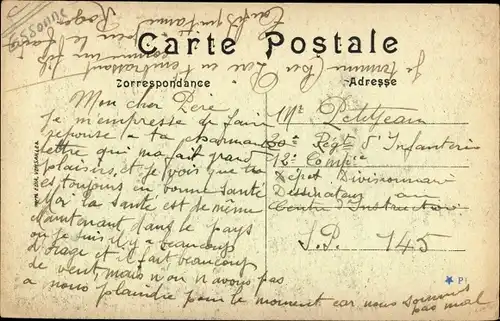 Carte Postale
Correspondance
Adresse
Mon cher Père
Je m'empresse de faire
réponse a ta charmante
lettre qui m'a fait grand
plaisirs, et je vois que tu
es toujours en bonne santé
Moi la santé est de même
Maintenant, dans le pays
ou je suis il y a beaucoup
d'orage et il fait beaucoup
de vent, mais n'on n'avons pas
a nous plaindre pour le moment car nous sommes
pas mal
Je termine Cher Père en t'embrassant
comme un fils
Mr Petitjean
30e Régt d'Infanterie
12e Compie
Dépot Divisionnaire
Dessinateur au
Centre d'Instruction
S.P. 145